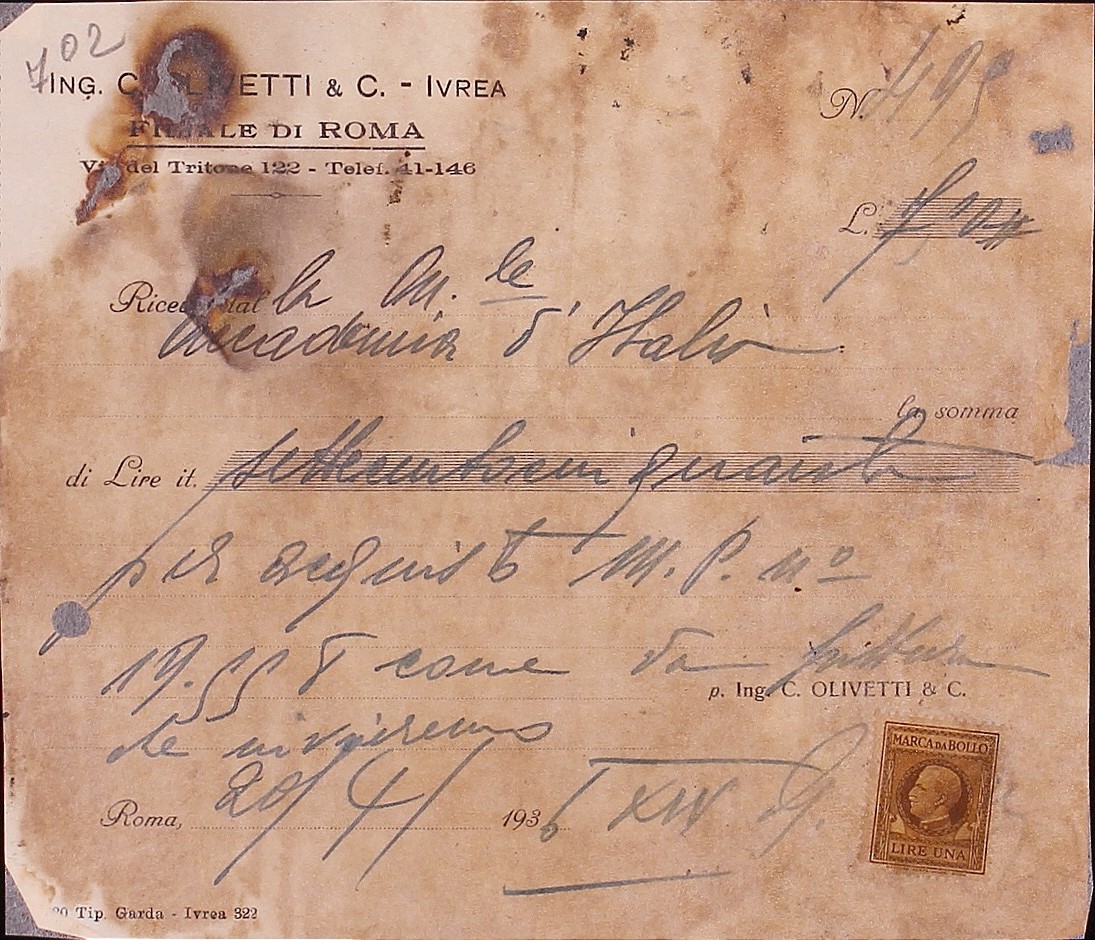 702
ING. C. OLIVETTI & C. - IVREA
FILIALE DI ROMA
Via del Tritone 122 - Telef. 41-146
N. 495
L.
Ricevuto dal la M. le
Accademia d'Italia
la somma
di Lire it. settecentocinquanta
per acquisto M. P. nº
come da fattura
che invieremo
p. Ing. C. OLIVETTI & C.
MARCA DA BOLLO
LIRE UNA
Roma, 20/4/ 1936 XIV
Tip. Garda - Ivrea 322